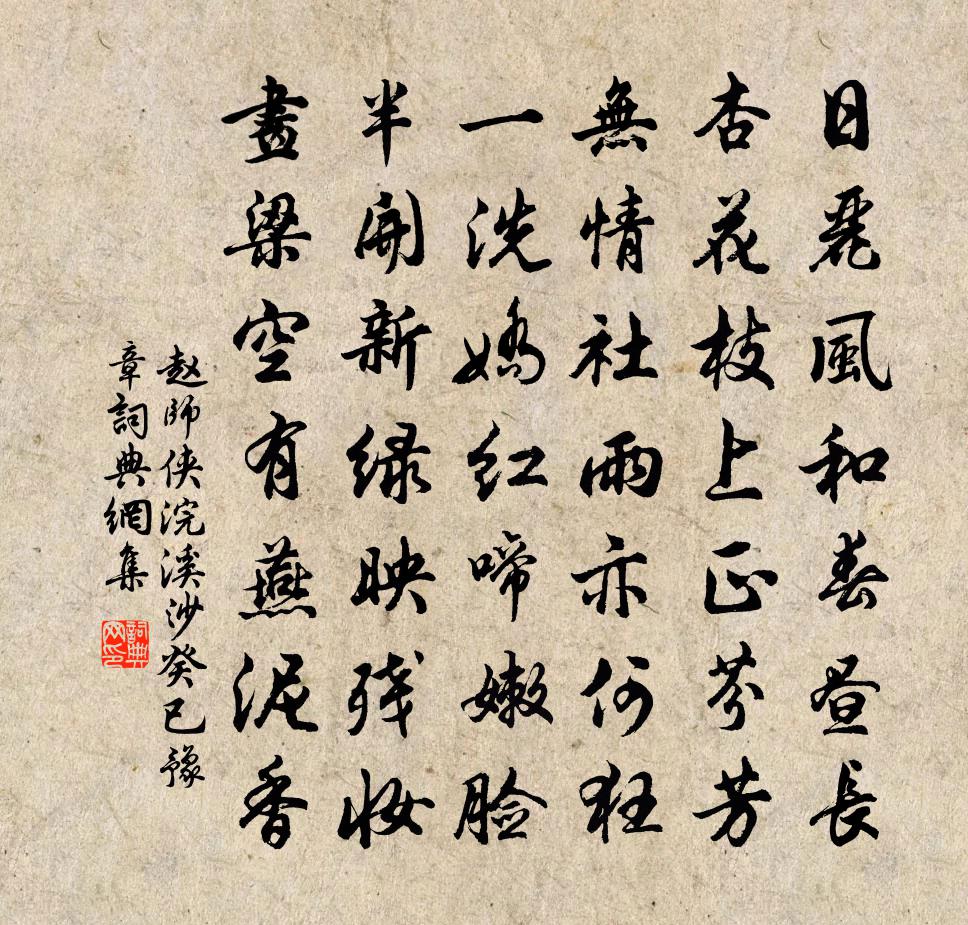 日麗風和春晝長
杏花枝上正芬芳
無情社雨亦何狂
一洗嬌红啼嫩臉
半開新绿映残妝
畫梁空有燕泥香
赵師侠浣溪沙癸巳豫
章詞典網集
詞典
网印